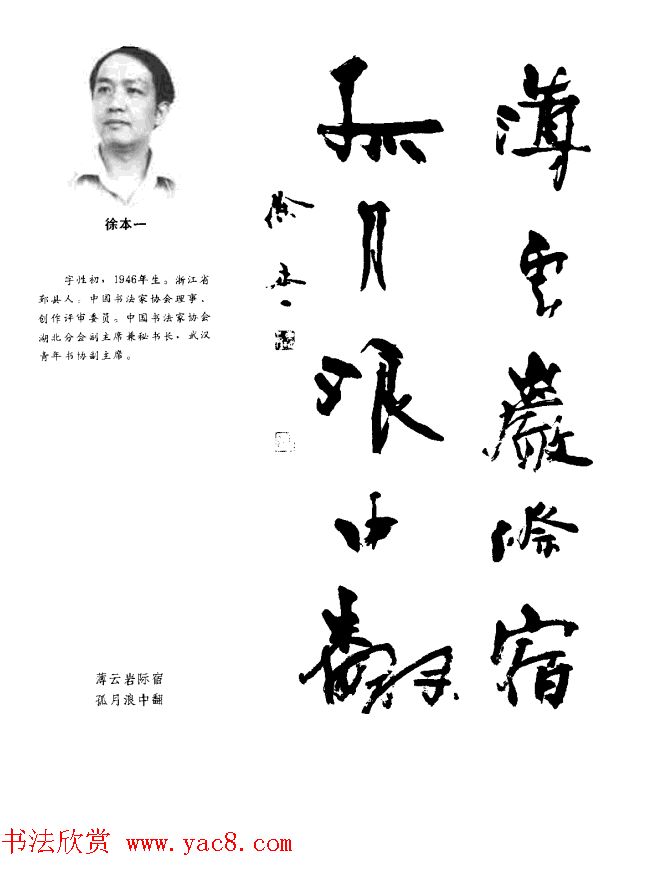 薄雲巖際宿
孤月浪中翻
徐本一
徐本一
字性初，1946年生。浙江省
鄞县人。中国书法家协会理事、
创作评审委员。中国书法家协会
湖北分会副主席兼秘书长，武汉
青年书协副主席。
薄云岩际宿
孤月浪中翻
书法欣赏 www.yac8.com